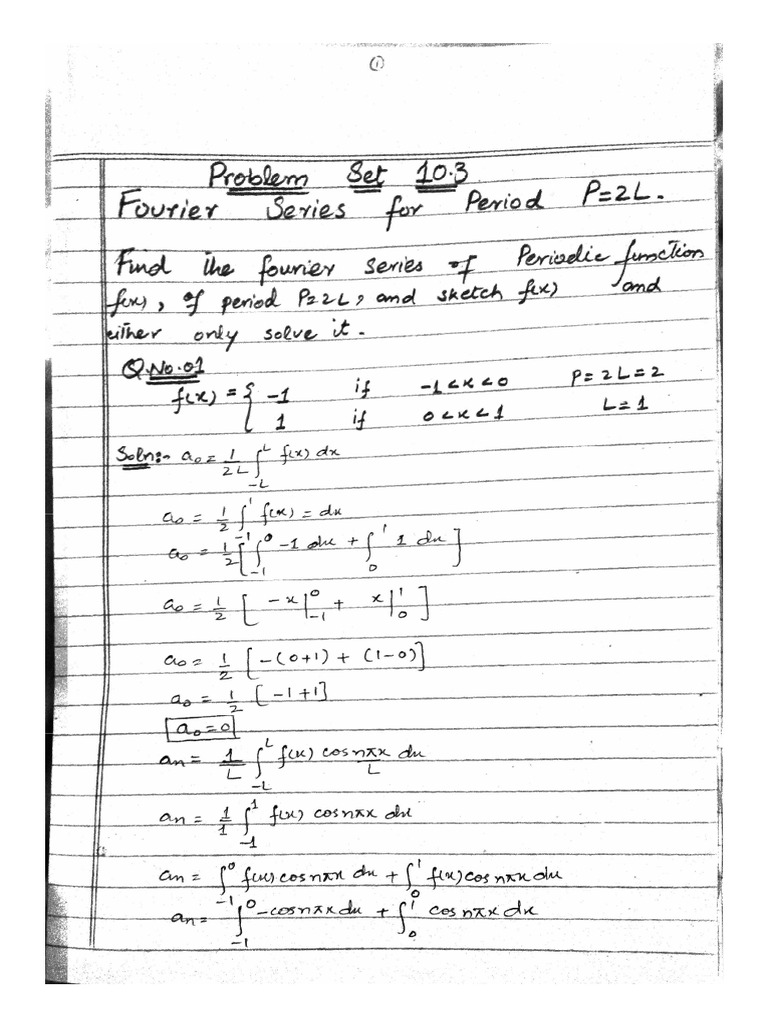 ①
Problem Set 10.3
Fourier Series for Period P=2L.
Find the fourier series of Periodic function
f(x), of period P=2L, and sketch f(x) and
either only solve it.
Q.No.01
f(x) = { -1 if -1<x<0 P=2L=2
1 if 0<x<1 L=1
Soln:- a₀ = 1/2L ∫_{-L}^{L} f(x) dx
a₀ = 1/2 ∫_{-1}^{1} f(x) = dx
a₀ = 1/2 [∫_{-1}^{0} -1 dx + ∫_{0}^{1} 1 dx]
a₀ = 1/2 [ -x|_{-1}^{0} + x|_{0}^{1} ]
a₀ = 1/2 [-(0+1) + (1-0)]
a₀ = 1/2 [-1+1]
a₀=0
an = 1/L ∫_{-L}^{L} f(x) cos nπx/L dx
an = 1/1 ∫_{-1}^{1} f(x) cosnπx dx
an = ∫_{-1}^{0} f(x) cosnπx dx + ∫_{0}^{1} f(x) cosnπx dx
an = ∫_{-1}^{0} -cosnπx dx + ∫_{0}^{1} cosnπx dx